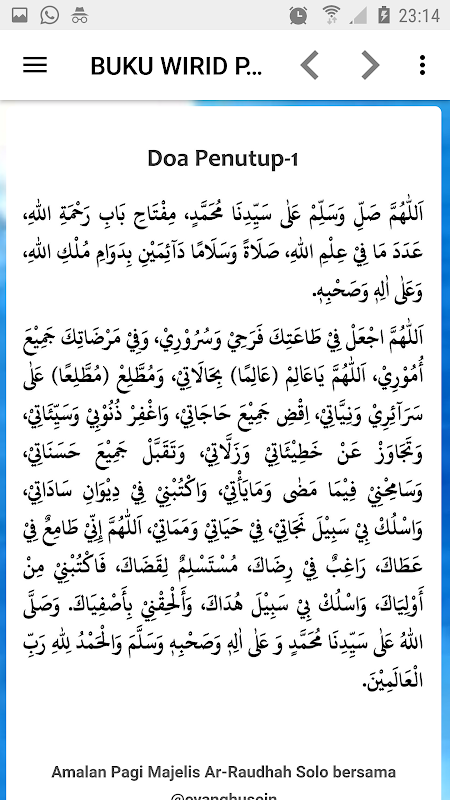 23:14
BUKU WIRID P...
Doa Penutup-1
اَللّٰهُمَّ صَلِّ وَسَلِّمْ عَلٰى سَيِّدِنَا مُحَمَّدٍ، مِفْتَاحِ بَابِ رَحْمَةِ اللهِ،
عَدَدَ مَا فِيْ عِلْمِ اللهِ، صَلَاةً وَسَلَامًا دَآئِمَيْنِ بِدَوَامِ مُلْكِ اللهِ،
وَعَلٰى اٰلِهٖ وَصَحْبِهٖ.
اَللّٰهُمَّ اجْعَلْ فِيْ طَاعَتِكَ فَرَحِيْ وَسُرُوْرِيْ، وَفِيْ مَرْضَاتِكَ جَمِيْعَ
أُمُوْرِيْ، اَللّٰهُمَّ يَاعَالِمْ (عَالِمًا) بِحَالَاتِيْ، وَمُطَّلِعْ (مُطَّلِعًا) عَلٰى
سَرَآئِرِيْ وَنِيَّاتِيْ، اِقْضِ جَمِيْعَ حَاجَاتِيْ، وَاغْفِرْ ذُنُوْبِيْ وَسَيِّئَاتِيْ،
وَتَجَاوَزْ عَنْ خَطِيْئَاتِيْ وَزَلَّاتِيْ، وَتَقَبَّلْ جَمِيْعَ حَسَنَاتِيْ،
وَسَامِحْنِيْ فِيْمَا مَضٰى وَمَايَأْتِيْ، وَاكْتُبْنِيْ فِيْ دِيْوَانِ سَادَاتِيْ،
وَاسْلُكْ بِيْ سَبِيْلَ نَجَاتِيْ، فِيْ حَيَاتِيْ وَمَمَاتِيْ، اَللّٰهُمَّ إِنِّيْ طَامِعٌ فِيْ
عَطَاكَ، رَاغِبٌ فِيْ رِضَاكَ، مُسْتَسْلِمٌ لِقَضَاكَ، فَاكْتُبْنِيْ مِنْ
أَوْلِيَاكَ، وَاسْلُكْ بِيْ سَبِيْلَ هُدَاكَ، وَأَلْحِقْنِيْ بِأَصْفِيَاكَ. وَصَلَّى
اللهُ عَلٰى سَيِّدِنَا مُحَمَّدٍ وَ عَلٰى اٰلِهٖ وَصَحْبِهٖ وَسَلَّمَ وَالْحَمْدُ لِلهِ رَبِّ
الْعَالَمِيْنَ.
Amalan Pagi Majelis Ar-Raudhah Solo bersama
@evanghusein